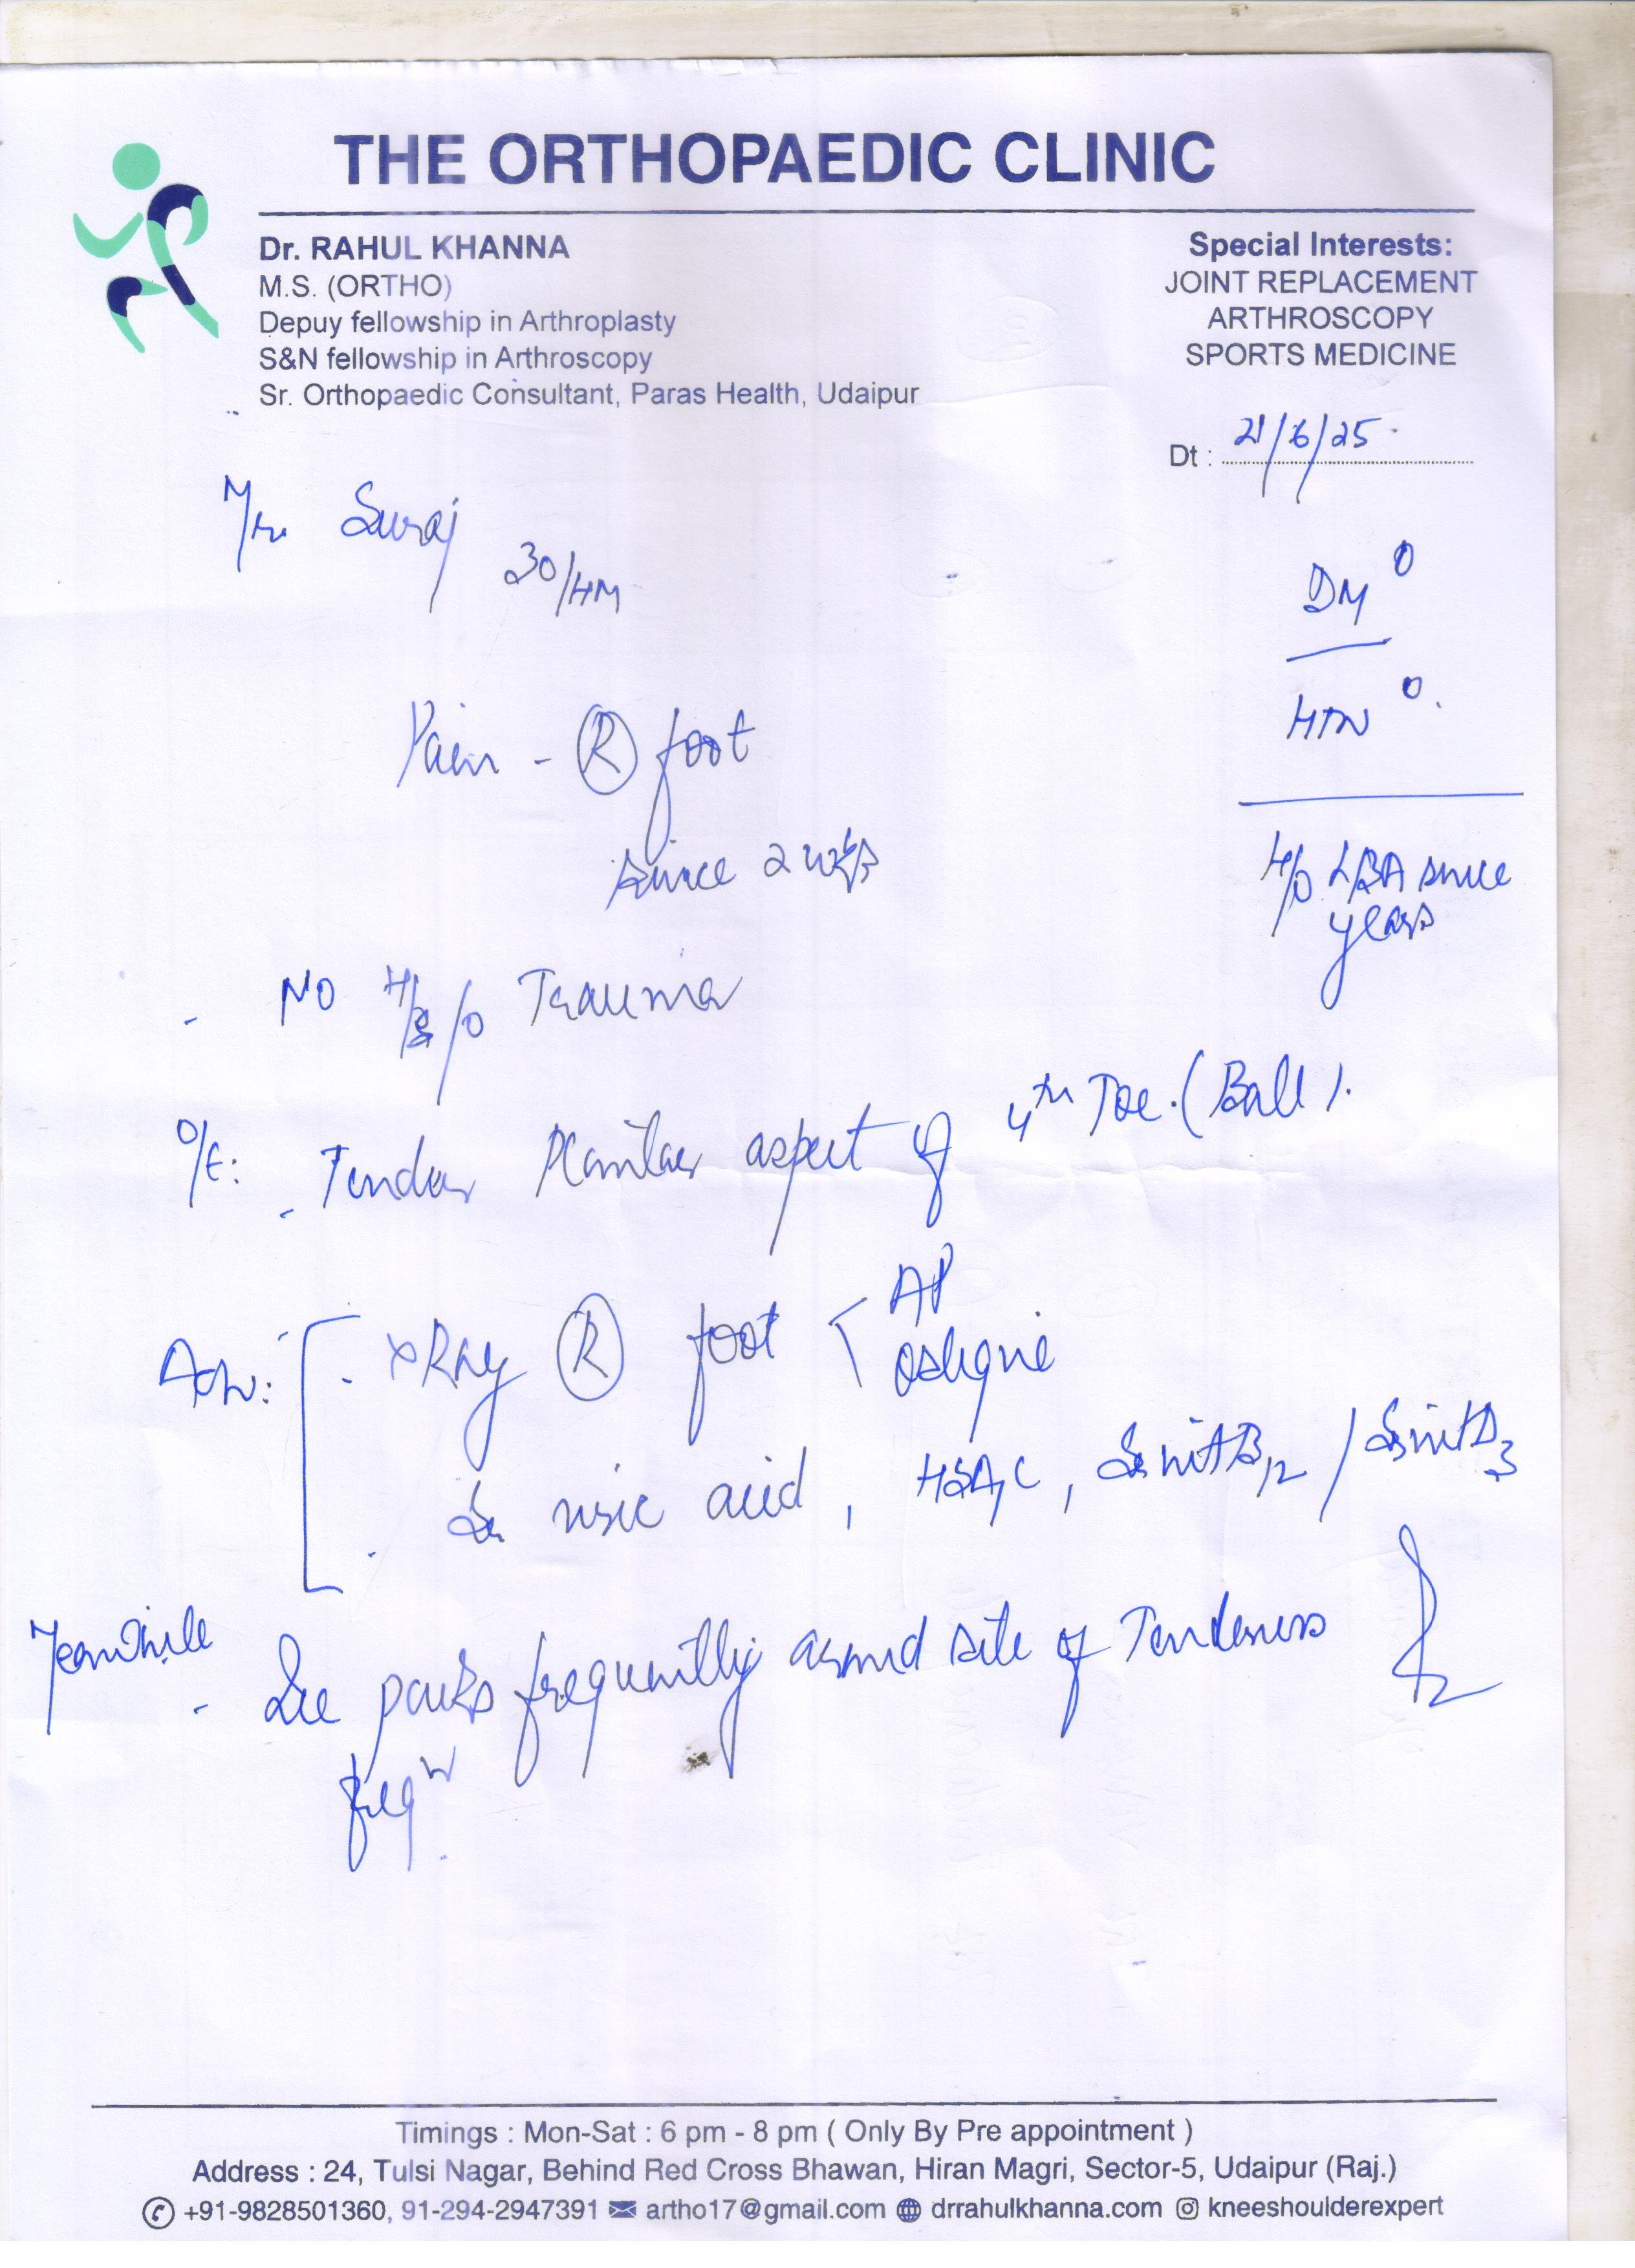 THE ORTHOPAEDIC CLINIC
Dr. RAHUL KHANNA
M.S. (ORTHO)
Depuy fellowship in Arthroplasty
S&N fellowship in Arthroscopy
Sr. Orthopaedic Consultant, Paras Health, Udaipur
Special Interests:
JOINT REPLACEMENT
ARTHROSCOPY
SPORTS MEDICINE
Dt : 21/6/25
Mr. Suraj
30/M
DM 0
HTN 0
Pain - R foot
since 2 wks
H/O LBA since
years
- NO H/O Trauma
O/E: - Tender Plantar aspect of 4th Toe. (Ball).
Adv: . XRay R foot < AP
Oblique
. Sr uric acid, HBA1C, Sr vit B12 / Sr vit D3
Meanwhile
- Ice packs frequently around site of Tenderness
Timings : Mon-Sat : 6 pm - 8 pm ( Only By Pre appointment )
Address : 24, Tulsi Nagar, Behind Red Cross Bhawan, Hiran Magri, Sector-5, Udaipur (Raj.)
+91-9828501360, 91-294-2947391 artho17@gmail.com drrahulkhanna.com kneeshoulderexpert